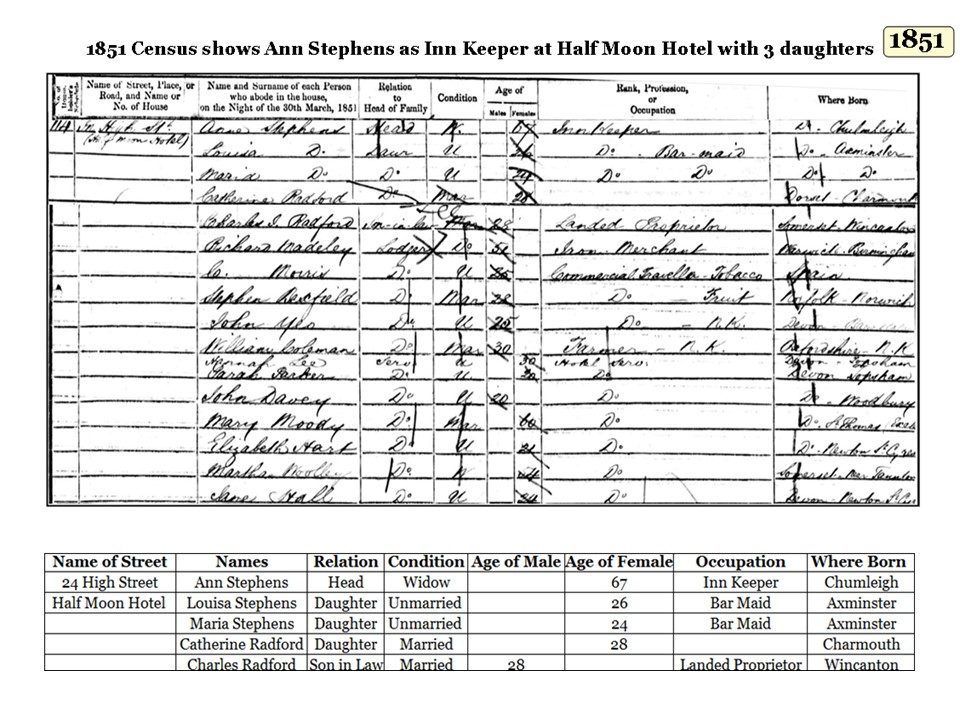 1851 Census shows Ann Stephens as Inn Keeper at Half Moon Hotel with 3 daughters
1851
Name of Street, Place, or Road, and Name or No. of House | Name and Surname of each Person who abode in the house, on the Night of the 30th March, 1851 | Relation to Head of Family | Condition | Age of Males Females | Rank, Profession, or Occupation | Where Born
High St. Anne Stephens Head W. 67 Inn Keeper Do. Chulmleigh
(Half Moon Hotel) Louisa Do. Daur U 26 Do. Bar-maid Do. Axminster
Maria Do. Do. U 24 Do. Do. Do. Do.
Catherine Radford Do. Mar 28 Dorset
Charles Radford Son-in-law 28 Landed Proprietor Somerset Wincanton
Richard Wadeley Lodger Do. Iron Merchant Warwick
Morris Do. U Commercial Traveller Tobacco Spain
Stephen Do. Mar Do. Fruit Norfolk Norwich
John Do. U 25 Do. N.K. Devon
William Coleman Do. Mar 30 Farmer N.K. Oxfordshire N.K.
Hannah Lee Serv. U 30 Hotel Serv. Devon Topsham
Sarah Parker Do. U Do. Devon Topsham
John Davey Do. U 20 Do. Do. Woodbury
Mary Moody Do. Mar 60 Do. Do. St. Thomas
Elizabeth Hart Do. U 21 Do. Do. Newton St. Cyres
Martha Woolley Do. W Do. Somerset
Jane Hall Do. U 24 Do. Devon Newton St.
Name of Street Names Relation Condition Age of Male Age of Female Occupation Where Born
24 High Street Ann Stephens Head Widow 67 Inn Keeper Chumleigh
Half Moon Hotel Louisa Stephens Daughter Unmarried 26 Bar Maid Axminster
Maria Stephens Daughter Unmarried 24 Bar Maid Axminster
Catherine Radford Daughter Married 28 Charmouth
Charles Radford Son in Law Married 28 Landed Proprietor Wincanton